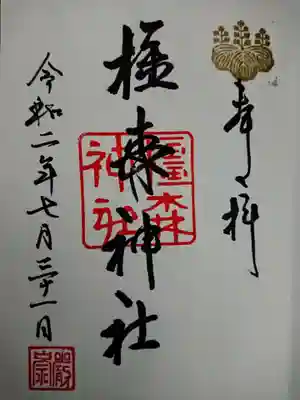 奉拝
橿森神社
橿森
神社
令和二年七月三十一日